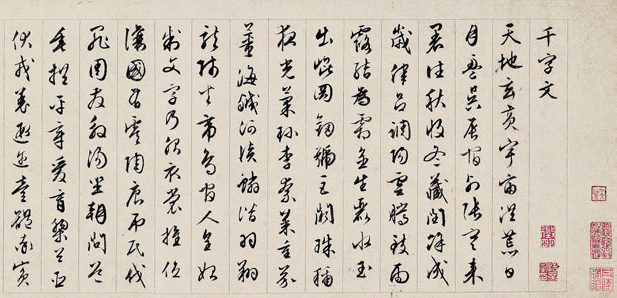 千字文
天地玄黃宇宙洪荒日
月盈昃辰宿列張寒來
暑往秋收冬藏閏餘成
歲律呂調陽雲騰致雨
露結為霜金生麗水玉
出崐岡劍號巨闕珠稱
夜光菓珍李柰菜重芥
薑海鹹河淡鱗潛羽翔
龍師火帝鳥官人皇始
制文字乃服衣裳推位
讓國有虞陶唐弔民伐
罪周發殷湯坐朝問道
垂拱平章愛育黎首臣
伏戎羌遐邇壹體率賓